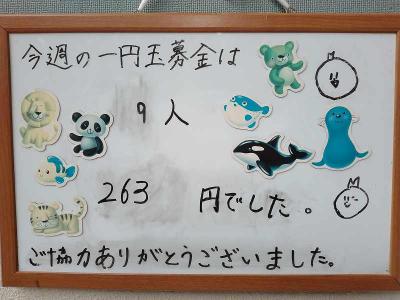 今週の一円玉募金は
9人
263 円でした。
ご協力ありがとうございました。